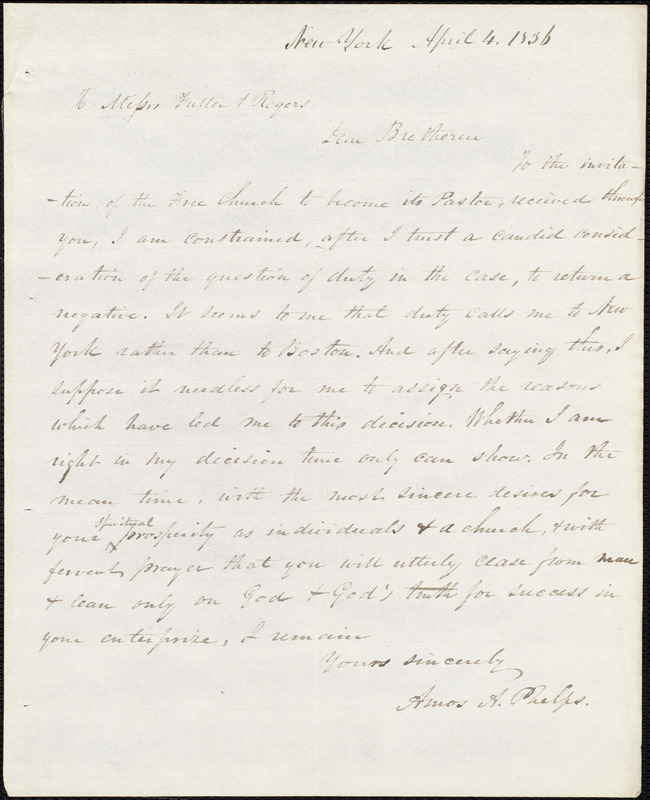 New York April 4. 1836
To Messrs Fuller & Rogers
Dear Bretheren
To the invita-
-tion, of the Free Church to become its Pastor, received through
you, I am constrained, after I trust a candid consid-
-eration of the question of duty in the case, to return a
negative. It seems to me that duty calls me to New
York rather than to Boston. And after saying this, I
suppose it needless for me to assign the reasons
which have led me to this decision. Whether I am
right in my decision time only can show. In the
mean time, with the most sincere desires for
your spiritual prosperity as individuals & a church, & with
fervent prayer that you will utterly cease from man
& lean only on God & God's truth for success in
your enterprize, I remain
Yours sincerely
Amos A. Phelps.